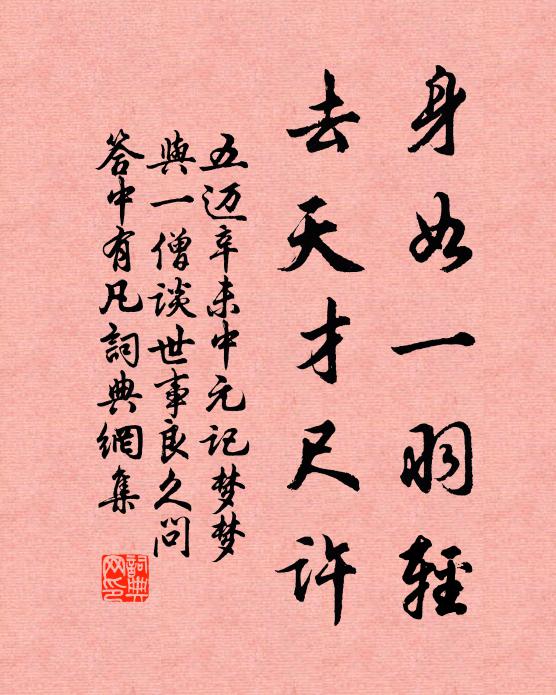 身如一羽輕
去天才尺許
五迈辛未中元记梦梦
與一僧谈世事良久问
答中有凡詞典網集
詞典網印